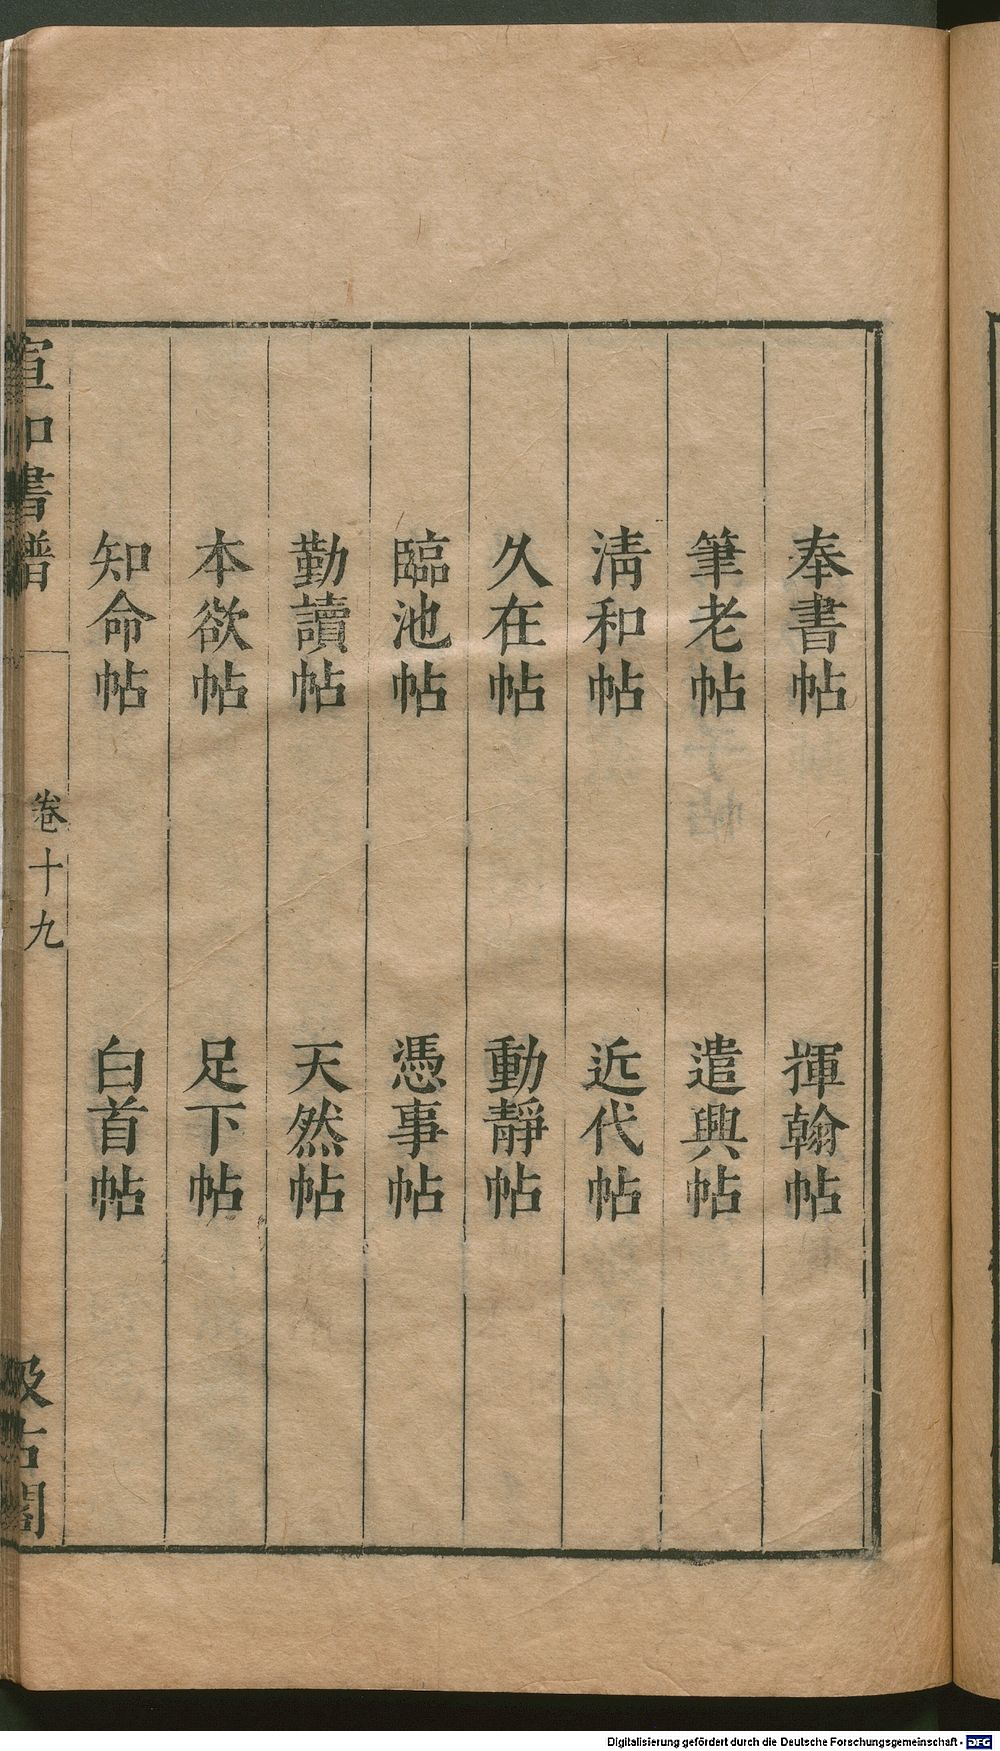 奉書帖　揮翰帖
筆老帖　遣興帖
清和帖　近代帖
久在帖　動靜帖
臨池帖　憑事帖
勤讀帖　天然帖
本欲帖　足下帖
知命帖　白首帖
宣和書譜　卷十九　汲古閣
Digitalisierung gefördert durch die Deutsche Forschungsgemeinschaft - DFG